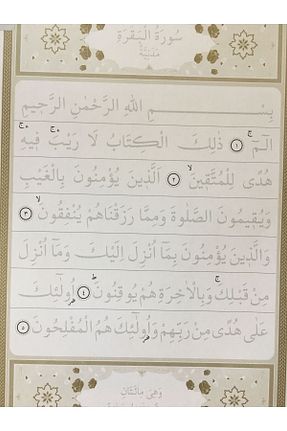 سُورَةُ الْبَقَرَةِ
مَدَنِيَّةٌ
بِسْمِ اللهِ الرَّحْمٰنِ الرَّحِيمِ
الٓمٓ ۚ ﴿١﴾ ذٰلِكَ الْكِتَابُ لَا رَيْبَۚۛ فِيهِۚۛ
هُدًى لِلْمُتَّقِينَۙ ﴿٢﴾ اَلَّذِينَ يُؤْمِنُونَ بِالْغَيْبِ
وَيُقِيمُونَ الصَّلٰوةَ وَمِمَّا رَزَقْنَاهُمْ يُنْفِقُونَۙ ﴿٣﴾
وَالَّذِينَ يُؤْمِنُونَ بِمَٓا اُنْزِلَ اِلَيْكَ وَمَٓا اُنْزِلَ
مِنْ قَبْلِكَۚ وَبِالْاٰخِرَةِ هُمْ يُوقِنُونَۜ ﴿٤﴾ اُو۬لٰٓئِكَ
عَلٰى هُدًى مِنْ رَبِّهِمْ وَاُو۬لٰٓئِكَ هُمُ الْمُفْلِحُونَ ﴿٥﴾
وَهِيَ مِائَتَانِ